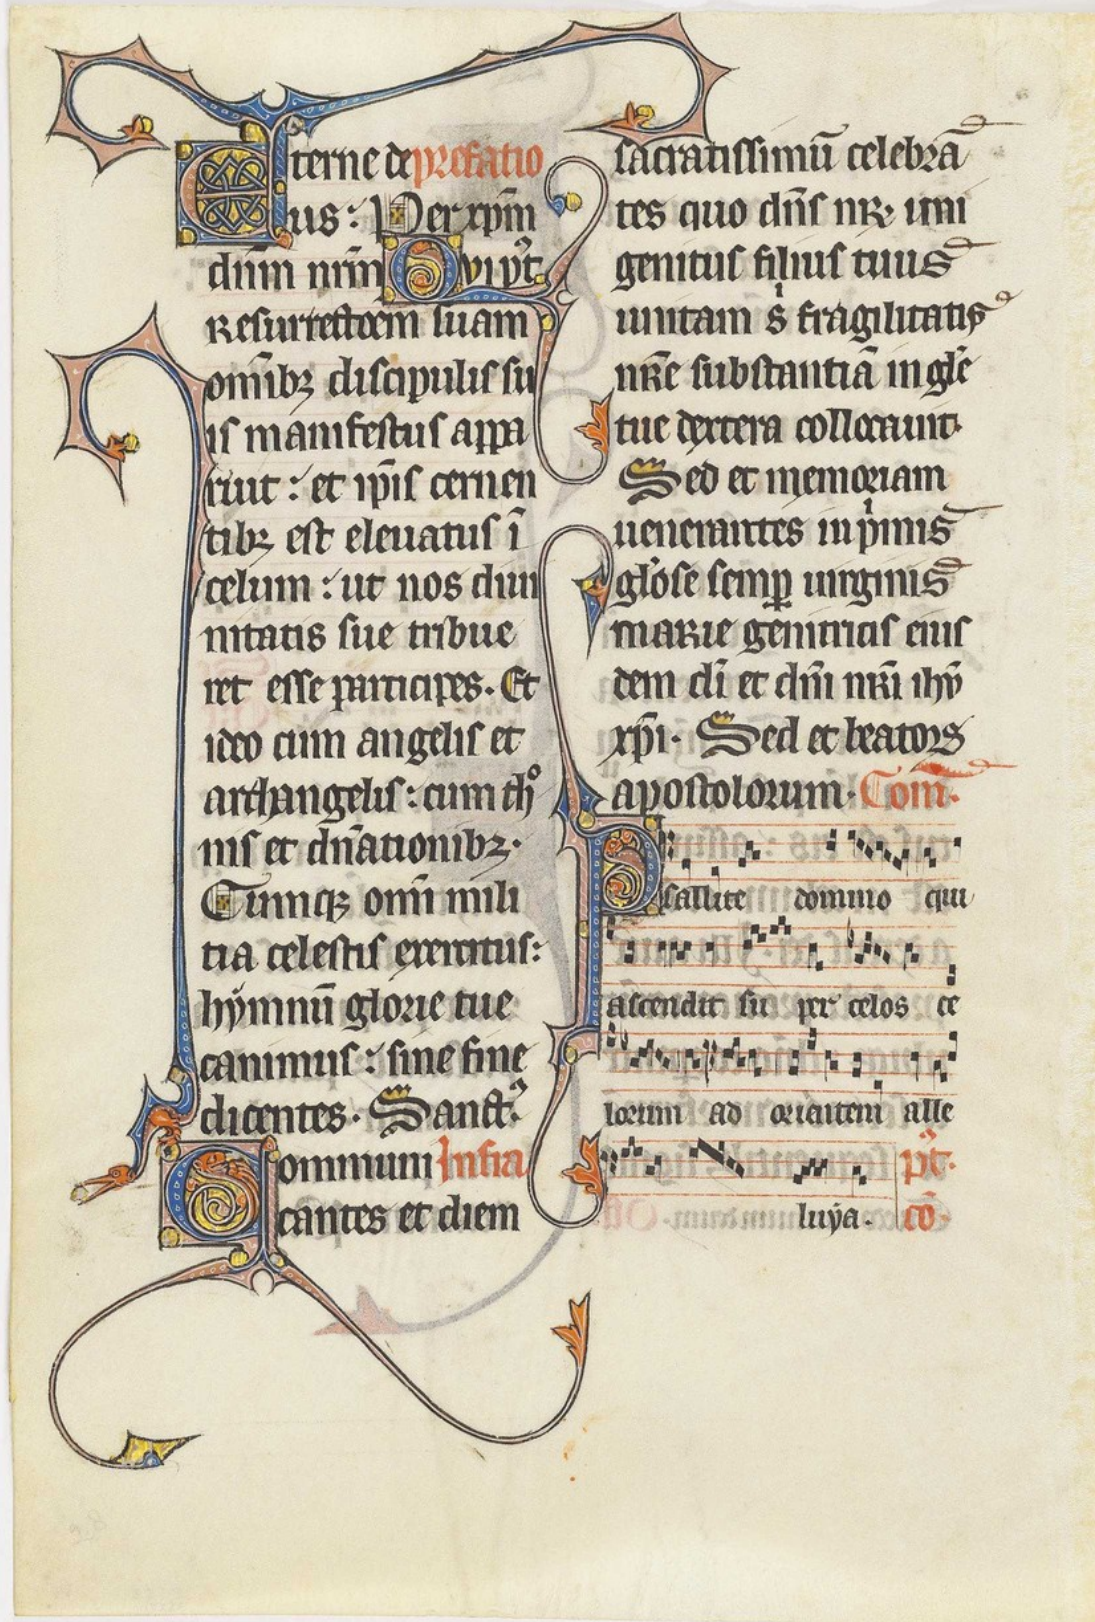 Eterne de prefatio
us: Per xp̄m
dn̄m nr̄m Qui pꝰt
resurrectōem suam
om̄ibꝫ discipulis su
is manifestus appa
ruit: et ip̄is cernen
tibꝫ est eleuatus ī
celum: ut nos diui
nitatis sue tribue
ret esse participes. Et
ideo cum angelis et
archangelis: cum thͦ
nis et dn̄ationibꝫ.
Cumqꝫ omī mili
tia celestis exercitus:
hẏmnū glorie tue
canimus: sine fine
dicentes. Sanctꝰ
Communi Infra
cantes et diem
sacratissimū celebrā
tes quo dn̄s nr̄ uni
genitus filius tuus
unitam s̾ fragilitatis
nr̄e substantiā in gl̄e
tue dextera collocauit.
Sed et memoriam
uenerantes inpͥmis
gl̓ose semꝑ uirginis
marie genitricis eius
dem dī et dn̄i nr̄i ihū
xp̄i. Sed et beatoꝝ
apostolorum. Com̄.
Psallite domino qui
ascendit su per celos ce
lorum ad orientem alle
luẏa. pꝰt.
cō.